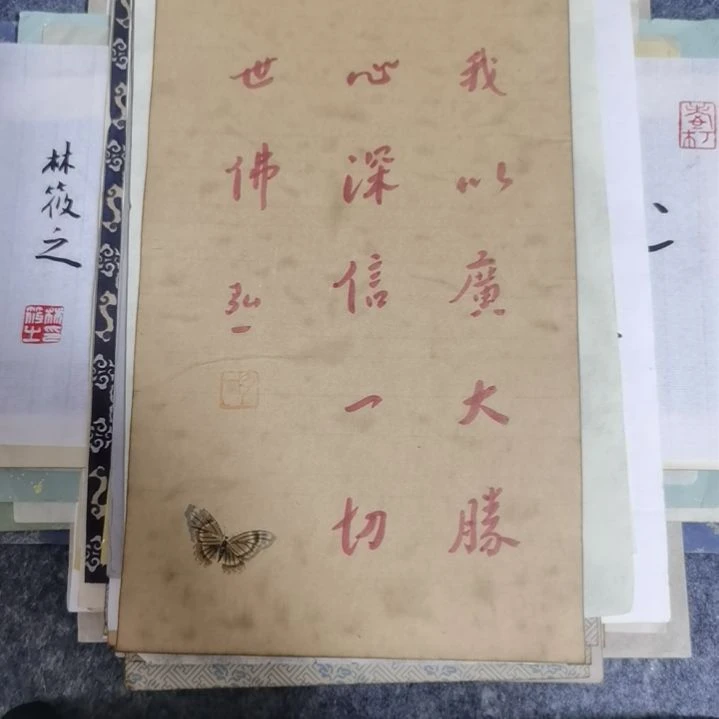 我以廣大勝
心深信一切
世佛
弘一
林筱之